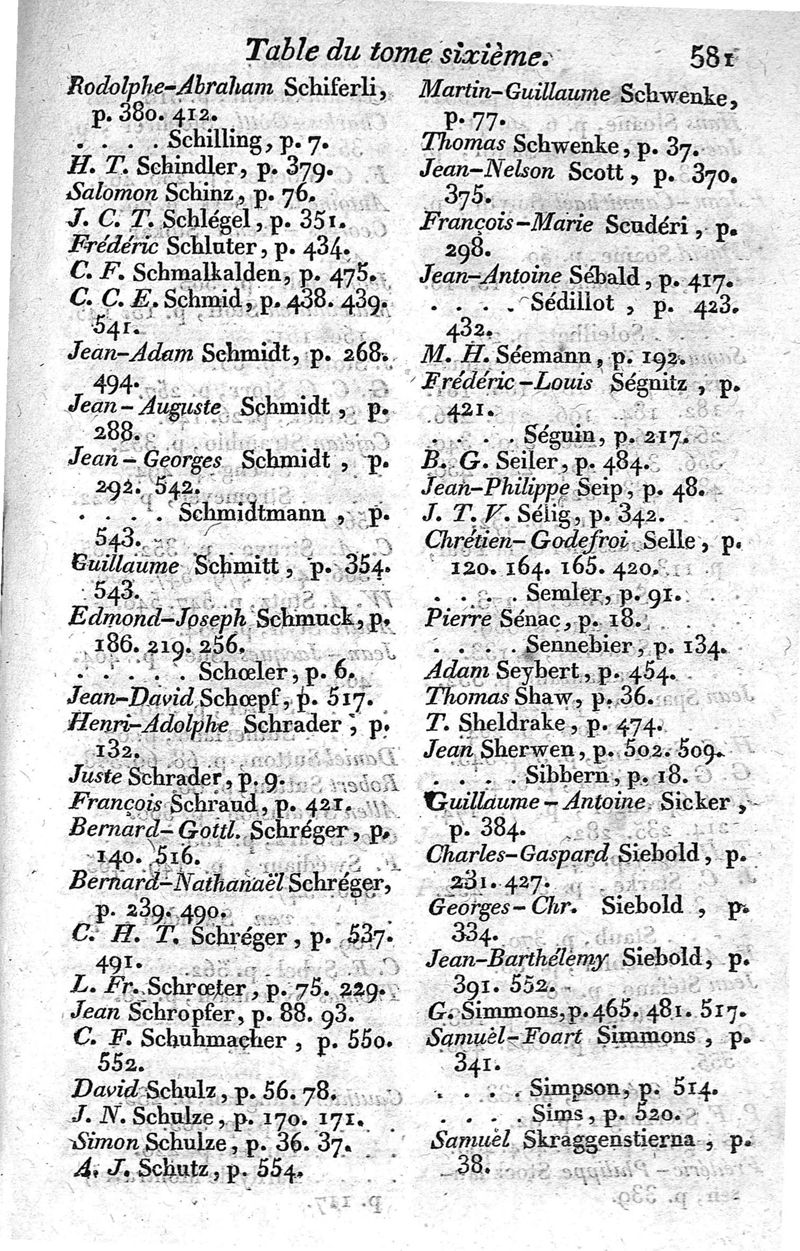 Table du tome sixième. 581
Rodolphe-Abraham Schiferli,
p. 380. 412.
. . . . Schilling, p. 7.
H. T. Schindler, p. 379.
Salomon Schinz, p. 76.
J. C. T. Schlégel, p. 351.
Frédéric Schluter, p. 434.
C. F. Schmalkalden, p. 475.
C. C. E. Schmid, p. 438. 439.
541.
Jean-Adam Schmidt, p. 268.
494.
Jean-Auguste Schmidt, p.
288.
Jean-Georges Schmidt, p.
292. 542.
. . . . Schmidtmann, p.
543.
Guillaume Schmitt, p. 354.
543.
Edmond-Joseph Schmuck, p.
186. 219. 256.
. . . . . Schœler, p. 6.
Jean-David Schœpf, p. 517.
Henri-Adolphe Schrader, p.
132.
Juste Schrader, p. 9.
François Schraud, p. 421.
Bernard-Gottl. Schréger, p.
140. 516.
Bernard-Nathanaël Schréger,
p. 239. 490.
C. H. T. Schréger, p. 537.
491.
L. Fr. Schrœter, p. 75. 229.
Jean Schropfer, p. 88. 93.
C. F. Schuhmacher, p. 550.
552.
David Schulz, p. 56. 78.
J. N. Schulze, p. 170. 171.
Simon Schulze, p. 36. 37.
A. J. Schutz, p. 554.
Martin-Guillaume Schwenke,
p. 77.
Thomas Schwenke, p. 37.
Jean-Nelson Scott, p. 370.
375.
François-Marie Scudéri, p.
298.
Jean-Antoine Sébald, p. 417.
. . . . Sédillot, p. 423.
432.
M. H. Séemann, p. 192.
Frédéric-Louis Ségnitz, p.
421.
. . . . Séguin, p. 217.
B. G. Seiler, p. 484.
Jean-Philippe Seip, p. 48.
J. T. V. Sélig, p. 342.
Chrétien-Godefroi Selle, p.
120. 164. 165. 420.
. . . . Semler, p. 91.
Pierre Sénac, p. 18.
. . . . Sennebier, p. 134.
Adam Seybert, p. 454.
Thomas Shaw, p. 36.
T. Sheldrake, p. 474.
Jean Sherwen, p. 502. 509.
. . . . Sibbern, p. 18.
Guillaume-Antoine Sicker,
p. 384.
Charles-Gaspard Siebold, p.
231. 427.
Georges-Chr. Siebold, p.
334.
Jean-Barthélemy Siebold, p.
391. 552.
G. Simmons, p. 465. 481. 517.
Samuël-Foart Simmons, p.
341.
. . . . Simpson, p. 514.
. . . . Sims, p. 520.
Samuël Skraggenstierna, p.
38.